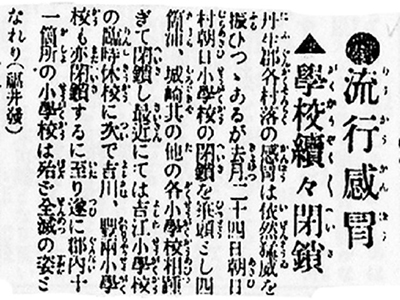 ●流行感冒
▲學校續々閉鎖
丹生郡各村落の感冒は依然猛威を
振ひつゝあるが去月二十四日朝日
村朝日小學校の閉鎖を筆頭とし四
箇浦、城崎其の他の各小學校相踵
ぎて閉鎖し最近にては吉江小學校
の臨時休校に次で吉川、豐兩小學
校も亦閉鎖するに至り遂に郡内十
一箇所の小學校は殆ど全滅の姿と
なれり(福井發)